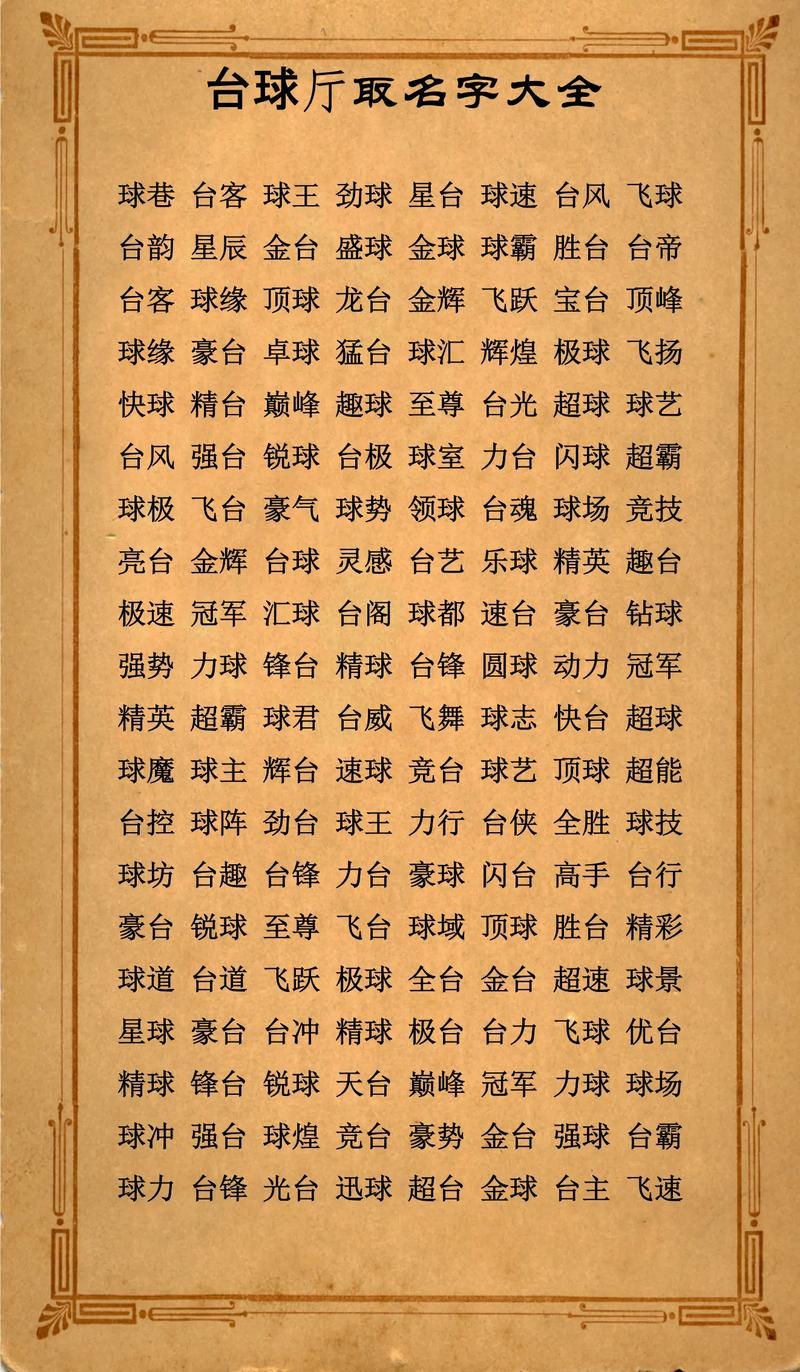 台球厅取名字大全
球巷 台客 球王 劲球 星台 球速 台风 飞球
台韵 星辰 金台 盛球 金球 球霸 胜台 台帝
台客 球缘 顶球 龙台 金辉 飞跃 宝台 顶峰
球缘 豪台 卓球 猛台 球汇 辉煌 极球 飞扬
快球 精台 巅峰 趣球 至尊 台光 超球 球艺
台风 强台 锐球 台极 球室 力台 闪球 超霸
球极 飞台 豪气 球势 领球 台魂 球场 竞技
亮台 金辉 台球 灵感 台艺 乐球 精英 趣台
极速 冠军 汇球 台阁 球都 速台 豪台 钻球
强势 力球 锋台 精球 台锋 圆球 动力 冠军
精英 超霸 球君 台威 飞舞 球志 快台 超球
球魔 球主 辉台 速球 竞台 球艺 顶球 超能
台控 球阵 劲台 球王 力行 台侠 全胜 球技
球坊 台趣 台锋 力台 豪球 闪台 高手 台行
豪台 锐球 至尊 飞台 球域 顶球 胜台 精彩
球道 台道 飞跃 极球 全台 金台 超速 球景
星球 豪台 台冲 精球 极台 台力 飞球 优台
精球 锋台 锐球 天台 巅峰 冠军 力球 球场
球冲 强台 球煌 竞台 豪势 金台 强球 台霸
球力 台锋 光台 迅球 超台 金球 台主 飞速